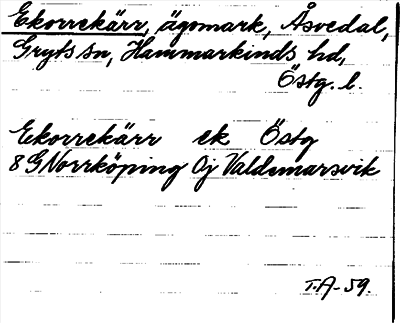 Ekorrekärr, ägomark, Åsvedal,
Gryts sn, Hammarkinds hd,
Östg. l.
Ekorrekärr ek Östg
8 G Norrköping 0j Valdemarsvik
T.A-59.